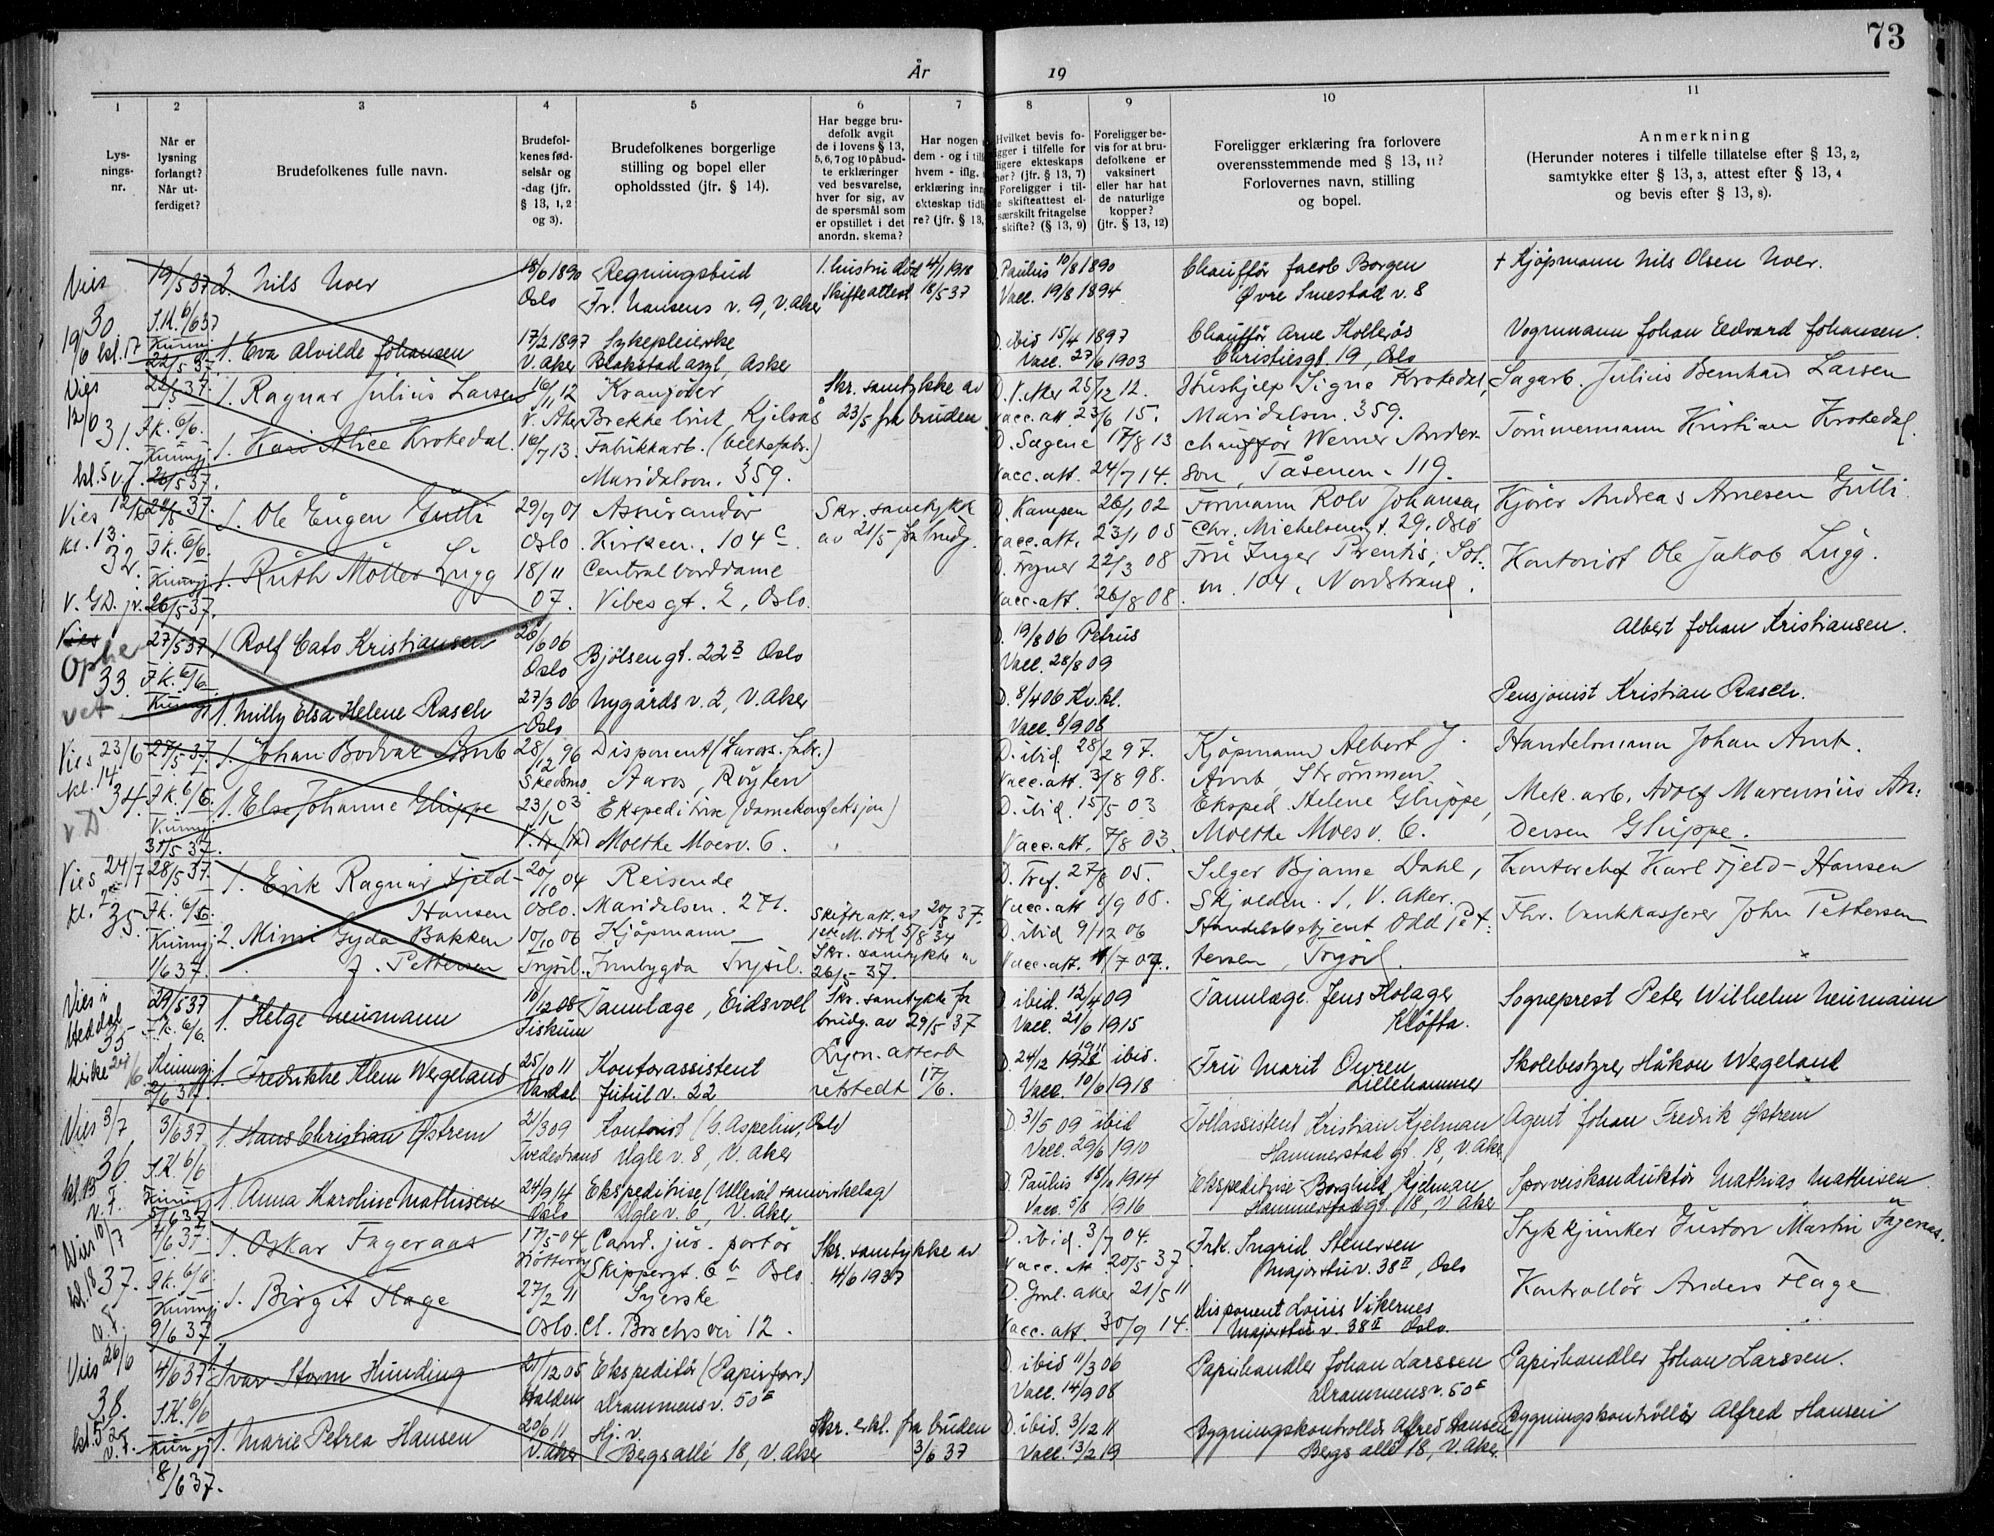 73
År 19
1 2 3 4 5 6 7 8 9 10 11
Lys-
nings-
nr.
Når er
lysning
forlangt?
Når ut-
ferdiget?
Brudefolkenes fulle navn.
Brudefol-
kenes fød-
selsår og
-dag (jfr.
§ 13, 1, 2
og 3).
Brudefolkenes borgerlige
stilling og bopel eller
opholdssted (jfr. § 14).
Har begge bru-
defolk avgit
de i lovens § 13,
5, 6, 7 og 10 påbud-
te erklæringer
ved besvarelse,
hver for sig, av
de spørsmål som
er opstillet i det
anordn. skema?
Har nogen
dem - og i til
hvem - iflg.
erklæring inn
ekteskap tidl
re? (jfr. § 13,
Hvilket bevis fo-
ligger i tilfelle for
ligere ekteskaps
hør? (jfr. § 13, 7)
Foreligger i til-
e skifteattest el-
særskilt fritagelse
skifte? (§ 13, 9)
Foreligger be-
vis for at bru-
defolkene er
vaksinert
eller har hat
de naturlige
kopper?
(jfr. § 13, 12)
Foreligger erklæring fra forlovere
overensstemmende med § 13, 11?
Forlovernes navn, stilling
og bopel.
Anmerkning
(Herunder noteres i tilfelle tillatelse efter § 13, 2,
samtykke efter § 13, 3, attest efter § 13, 4
og bevis efter § 13, 8).
Vies 19/5 37 2. Nils Noer 18/6 1890 Regningsbud 1. hustru død 4/1 1918 Paulus 10/8 1890 Chauffør Jacob Borgen + Kjøpmann Nils Olsen Noer.
30 6/6 37 Oslo Fr. Nansens v. 9, V. Aker Skifteattest 18/5 37 Vacc. 19/8 1894 Øvre Smestad v. 8
19/6 kl. 17 1. Eva Alvilde Johansen 17/2 1897 Sykepleierske D. ibid 15/4 1897 Chauffør Arne Vognmann Johan Edvard Johansen.
22/5 37 V. Aker Blakstad asyl, Asker Vacc. 27/6 1903 Christiesgt. 19, Oslo
Vies 1. Ragnar Julius Larsen 16/11 12 Kranfører Skr. samtykke av D. V. Aker 25/12 12. Hushjelp Signe Krokedal, Sagarb. Julius Bernhard Larsen
12/6 31. 6/6. V. Aker Brekke bruk, Kjelsås 23/5 fra bruden. Vacc. att. 23/6 15. Maridalsvn. 359.
1. Kari Alice Krokedal. 16/7 13. Fabrikkarb. D. Sagene 17/8 13 chauffør Werner Ander- Tømmermann Kristian Krokedal.
kl. 5 26/5 37. Maridalsvn. 359. Vacc. att. 24/7 14. son, Tåsenvn. 119.
Vies 12/6 1. Ole Eugen Gulli 29/9 01 Assurandør Skr. samtykk D. Kampen 26/1 02 Formann Rolv Johansen Kjører Andreas Arnesen Gulli
kl. 13. 6/6. Oslo Kirkevn. 104 c av 21/5 fra brudg. Vacc. att. 23/1 05 Chr. Michelsensgt. 29, Oslo
32. 1. Ruth Møller Lugg 18/11 Centralborddame D. 22/3 08 Fru Inger Kontorist Ole Jakob Lugg.
26/5 37. 07. Vibesgt. 2, Oslo. Vacc. att. 26/8 08. vn. 104, Nordstrand.
Vies 27/5 37 1. Rolf Cato Kristiansen 06 D. 19/8 06 Petrus Albert Johan Kristiansen.
Ophe 33. 6/6 Oslo Bjølsengt. 22 B Oslo Vacc. 28/8 09
vet 1. Milly Elsa Helene Rasch 27/3 06 Nygårds v. 2, V. Aker D. 8/4 06 Pensjonist Kristian Rasch.
Oslo Vacc. 8/9 08
Vies 23/6 27/5 37. 1. Johan Bodvar Amb 28/12 96 Disponent D. ibid 28/2 97. Kjøpmann Albert J. Handelsmann Johan Amb.
kl. 14 6/6. Skedsmo. Aaros, Røyken Vacc. att. 3/8 98. Amb, Strømmen
34. 1. Else Johanne Gluppe 23/ 03 Ekspeditrise (damekonfeksjon) D. ibid. 15/5 03 Eksped. Helene Gluppe, Mek. arb. Adolf Marensius An-
31/5 37. Molthe Moesv. 6. Vacc. att. 7/8 03. Molthe Moes v. 6. dersen Gluppe.
Vies 24/7 28/5 37. 1. Erik Ragnar Fjeld- 20/10 04 Reisende D. 27/8 05. Selger Bjarne Dahl, Kontorchef Karl Fjeld-Hansen
35. Hansen Oslo. Maridalsvn. 271. Skifteatt. av 20/5 37. Vacc. att 1/9 08. V. Aker.
2. Mimi Gyda Bakken 10/10 06 Kjøpmann M. død 5/8 34 D. ibid 9/12 06 Handelsbetjent Odd Pet- Fhv. bankkasserer John Pettersen
1/6 37. f. Pettersen Trysil. Innbygda Trysil. Skr. samtykke 26/5 37. Vacc. att. tersen, Trysil.
Vies i 29/5 37 1. Helge Neumann 10/12 08 Tannlæge, Eidsvoll Skr. samtykke fra D. ibid. 12/4 09 Tannlæge Jens Holager Sogneprest Peter Wilhelm Neumann
Heddal 35 6/6. Fiskum brudg. av 29/5 37 Vacc. 21/6 1915 Kløfta.
kirke 24/6. 1. Fredrikke Klem Wergeland 25/10 11 Kontorassistent Lysn. attest D. 24/12 1911 ibid. Fru Marit Skolebestyrer Håkon Wergeland
2/6 37. Vardal Jutul v. 22 utstedt 17/6. Vacc. 10/6 1918 Lillehammer
Vies 3/7 3/6 37 1. Hans Christian Østrem 21/3 09 Kontorist (C. Aspelin, Oslo) D 31/5 09 ibid Tollassistent Kristian Kjelman Agent Johan Fredrik Østrem
36. 6/6 Tvedestrand Ugle v. 8, V. Aker Vacc. 29/6 1910 Hammerstadgt. 18, V. Aker
kl. 13 1. Anna Karoline Mathisen 24/9 14 Ekspeditrise (Ullevål samvirkelag) D. Paulus 1914 Ekspeditrise Borghild Kjelman Sporveiskonduktør Mathias Mathisen
5/6 37 Oslo Ugle v. 6, V. Aker Vacc. 5/8 1916 Hammerstadgt. 18, V. Aker
Vies 10/7 4/6 37. 1. Oskar Fageraas 17/5 04 Cand. jur. portør Skr. samtykke av D. ibid. 3/7 04. Frk. Ingrid Stykkjunker Gustav Martin Fageraas.
kl. 18 37. 6/6. Skippergt. 6 b Oslo. 4/6 1937 Vacc. at. 20/5 37 Majorstuv. 38 II, Oslo
1. Birgit Flage 27/2 11 Syerske D. Gml. aker 21/5 11 Disponent Louis Vikernes Kontrollør Anders Flage
9/6 37 Oslo. Cl. vei 12. Vacc. att. 30/9 14. Majorstu v. 38 II Oslo.
Vies 26/6 4/6 37 1. Ivar Storm Hunding 21/12 05 Ekspeditør (Papirforr.) D. ibid 11/3 06 Papirhandler Johan Larssen Papirhandler Johan Larssen.
38. 6/6 Halden Drammensv. 50 E Vacc. 14/9 08 Drammensv. 50 E
kl. 5 1. Marie Petrea Hansen 20/6 11 Hj. v. Skr. erkl. fra bruden D. ibid. 3/12 11 Bygningskontrollør Alfred Hansen Bygningskontrollør Alfred Hansen
8/6 37. V. Aker Bergsallé 18, V. Aker 3/6 37 Vacc. 13/2 19 Bergs allé 18, V. Aker.